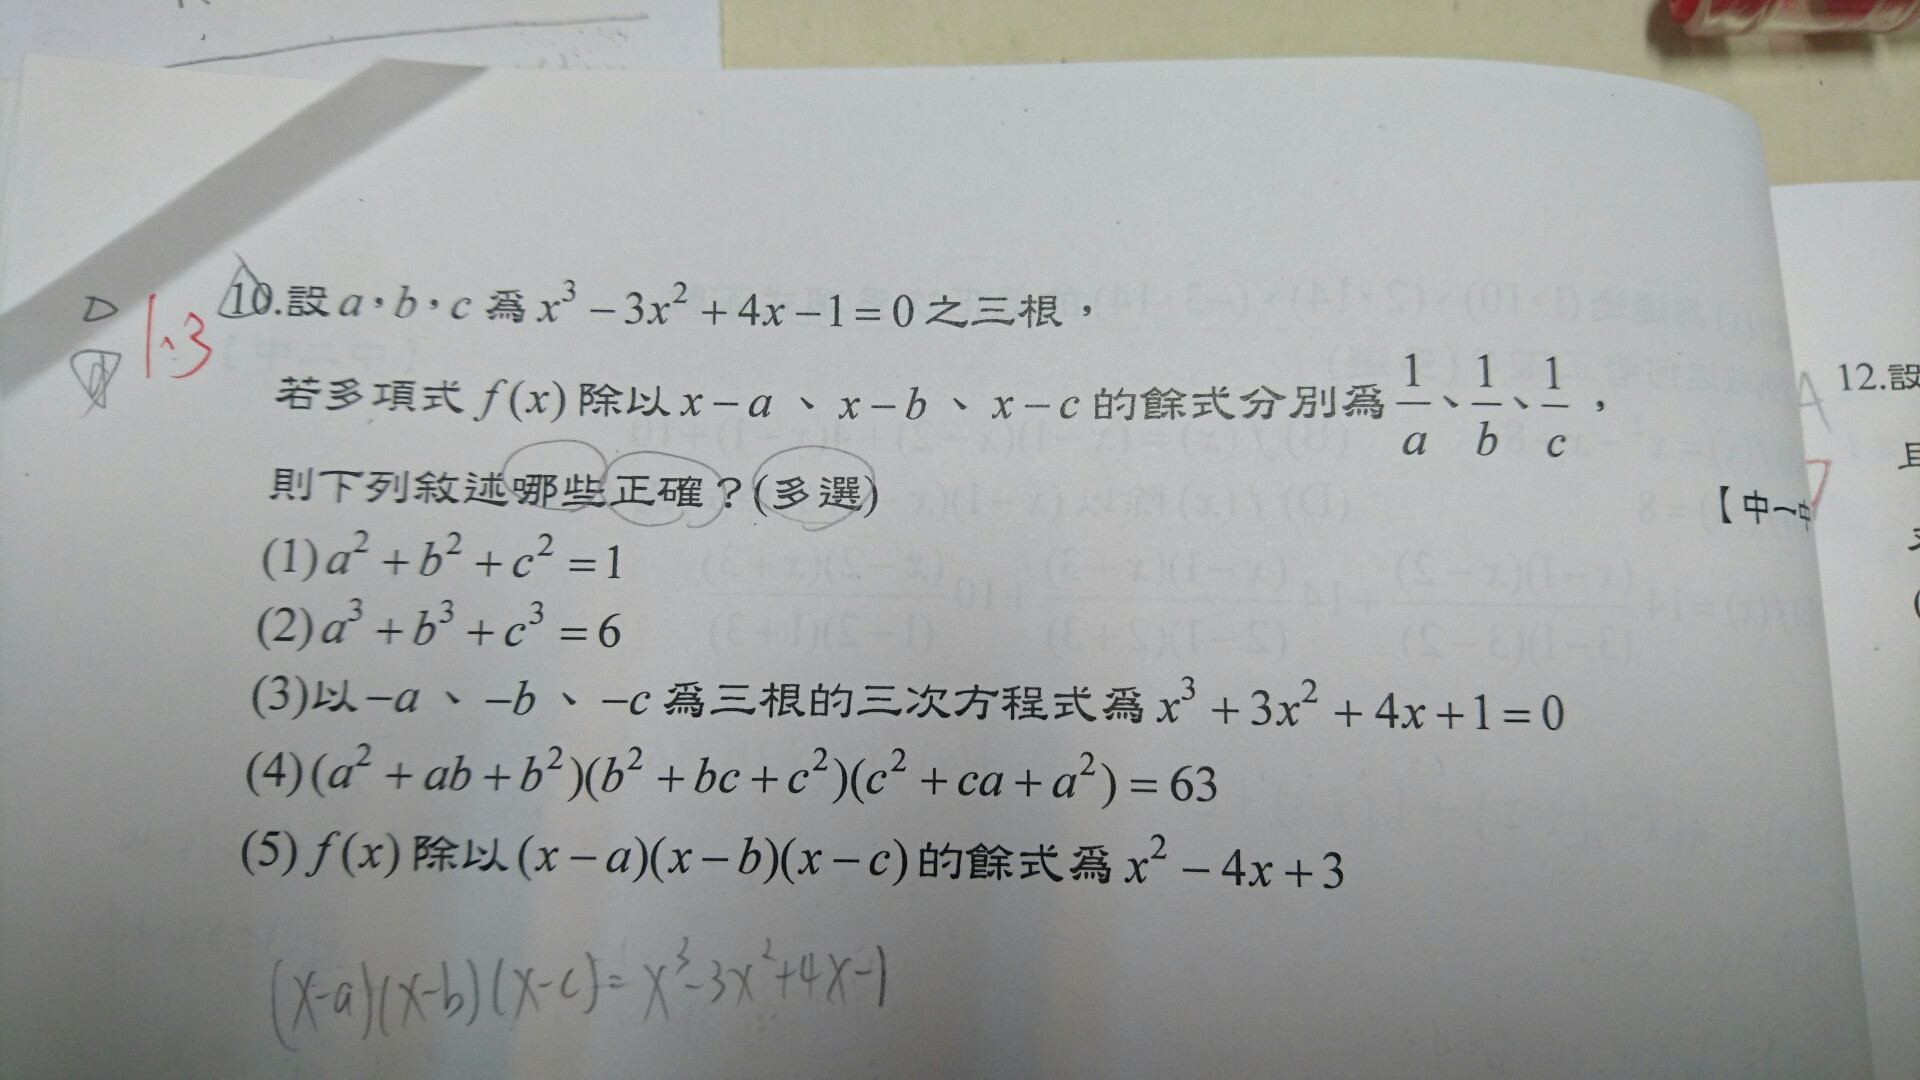 D
1、3
10.設a，b，c 為 x³ − 3x² + 4x − 1 = 0 之三根，
若多項式 f(x) 除以 x − a 、 x − b 、 x − c 的餘式分別為 1/a、1/b、1/c ，
則下列敘述哪些正確？(多選)
【中一中
(1) a² + b² + c² = 1
(2) a³ + b³ + c³ = 6
(3)以 −a 、 −b 、 −c 為三根的三次方程式為 x³ + 3x² + 4x + 1 = 0
(4) (a² + ab + b²)(b² + bc + c²)(c² + ca + a²) = 63
(5) f(x) 除以 (x − a)(x − b)(x − c) 的餘式為 x² − 4x + 3
(x-a)(x-b)(x-c)= x³-3x²+4x-1
12.設
且